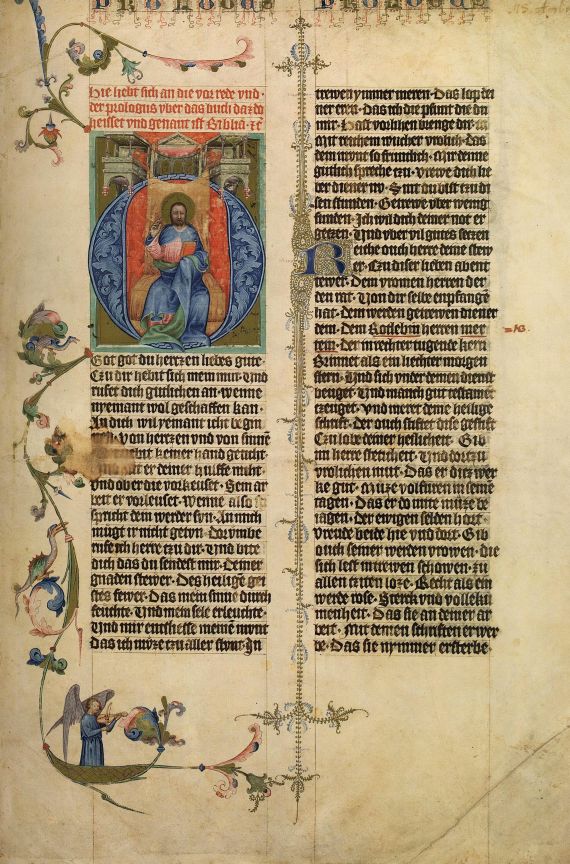 Prologus Prologus
Hie hebt sich an die vor rede vnd
der prologus vber das buch daz do
heisset vnd genant ist Biblia ꝛc̄
Got got du hertzen liebes gute·
Czu dir hebit sich mein mut· Vnd
rufet dich gutlichen an· wenne
nyemant wol geschaffen kan·
An dich wil yemant icht begin
Von hertzen vnd von sinnē
keiner hand geticht·
er deiner hulffe nicht·
vnd ob er die vorkeuset· Sein ar
beit er vorleuset· Wenne also
spricht dem werder syn· An mich
mugt ir nicht getun· Dor vmbe
rufe ich herre czu dir· Vnd bite
dich das du sendest mir· Deiner
gnaden stewer· Des heilige gei
stes fewer· Das mein sinne durch
feuchte· Vnd mein sele erleuchte·
Vnd mir entslisse meinē mvnt
Das ich mvze czu aller stvnt· In
trewen ymmer meren· Das lop dei
ner eren· Das ich die pfunt die du
mir· Hast vorlihen brenge dir·
mit reichem wucher vrolich· Das
dem mvnt so frunlich· Mir denne
gutlich spreche czu· Vrewe dich he
ber diener nv· Seint du bist czu di
sen stunden· Getrewe vber wenig
funden· Ich wil dich deiner not er
getzen· Vnd vber vil gutes setzen
Reiche ouch herre deine stew
er· Czu diser lieben abent
tewer· Dem vromen herren der
den rat· Von dir selbe enpfangē
hat· Dem werden getrewen diener
dein· Dem Rotlebin herren mer
tein· Der in rechter tugende kern
Brinnet als ein liechter morgen
stern· Vnd sich vnder deinen dienst
beuget· Vnd manch gut testament
czeuget· Vnd meret deine heilige
schrift· Der ouch stiftet dise gestift
Czu lobe deiner heilicheit· Gib
im herre stetickeit· Vnd dortzu
vrolichen mut· Das er ditz wer
ke gut· Mvze volfuren in seinē
tagen· Das er do mite mvze be
iagen· Der ewigen selden hort·
vreude beide hie vnd dort· Gib
ouch seiner werden vrowen· die
sich lest in trewen schowen· Czu
allen czeiten loze· Recht als ein
werde rose· Sterck vnd volleku
menheit· Das sie an deiner ar
beit· Mit deinen schriften er wer
de· Das sie nymmer ersterbe·